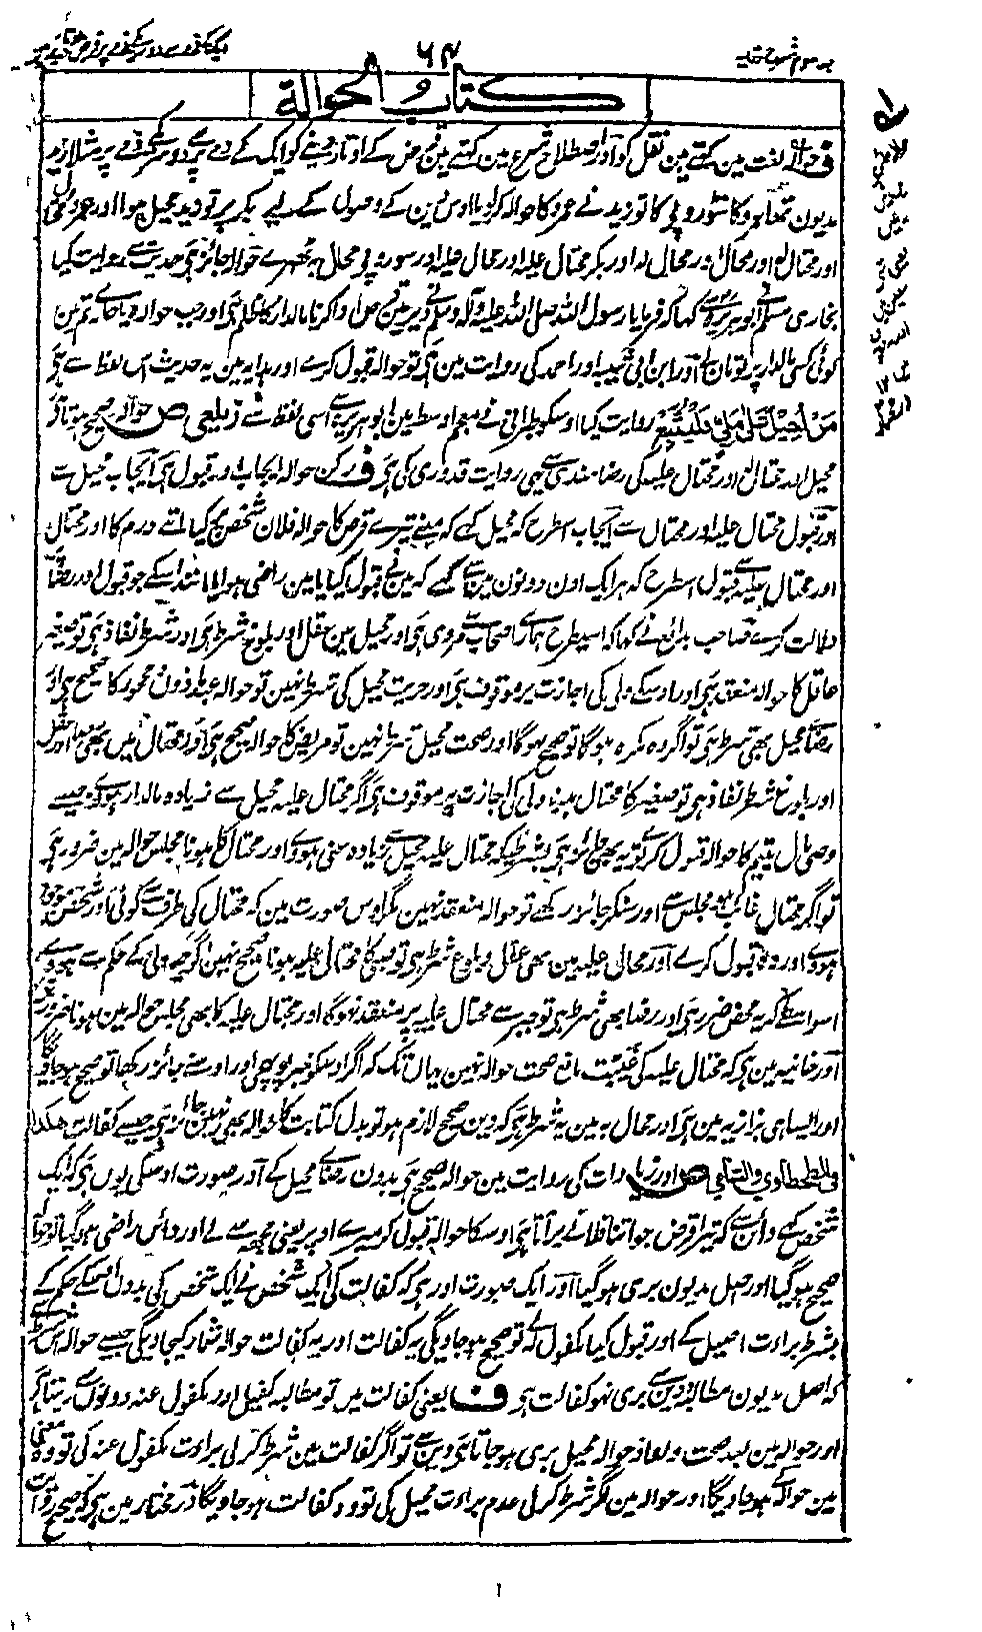 ۶۴
کتاب الحوالة
ف حوالہ لغت مین کہتے مین نقل کو اور اصطلاح شرع مین کہتے مین قرض کے اوتار دینے کو ایک کے ذمے سے دوسرے کے ذمے پر مثلا زید
مدیون تھا عمرو کا سو روپے کا تو زید نے عمرو کا حوالہ کر دیا اوس دین کے وصول کے لیے بکر پر تو زید محیل ہوا اور عمرو
اور محتال لہ اور محال اور محال لہ اور بکر محتال علیہ اور محال علیہ اور سو روپے محال بہ حوالہ جائز ہی حدیث سے روایت کیا
بخاری مسلم نے ابو ہریرہ سے کہا کہ فرمایا رسول اللہ صلی اللہ علیہ وآلہ وسلم نے دیر قرض ادا کرنا مالدار کا ظلم ہی اور جب حوالہ دیا جائے تم مین
کوئی کسی مالدار پر تو مان لے اور ابن ابی شیبہ اور احمد کی روایت مین ہی تو حوالہ قبول کرے اور ہدایہ مین یہ حدیث اس لفظ سے ہی
مَنْ اُحِیْلَ عَلٰی مَلِیٍّ فَلْیَتَّبِعْ روایت کیا اوسکو طبرانی نے معجم اوسط مین ابو ہریرہ سے اسی لفظ سے زیلعی ص حوالہ صحیح ہوتا ہی
محیل اور محتال لہ اور محتال علیہ کی رضامندی سے یہی روایت قدوری کی ہی ف رکن حوالہ ایجاب اور قبول ہی ایجاب محیل سے
اور قبول محتال علیہ اور محتال سے ایجاب اسطرح کہ محیل کہے کہ مینے تیرے قرض کا حوالہ فلان شخص پر کیا اتنے درم کا اور محتال
اور محتال علیہ سے قبول اسطرح کہ ہر ایک اون دونون مین سے کہے کہ مین نے قبول کیا یا مین راضی ہوا یا مانند اسکے جو قبول اور رضا پر
دلالت کرے صاحب بدائع نے کہا کہ اسیطرح ہمارے اصحاب سے مروی ہی اور محیل مین عقل اور بلوغ شرط ہی اور شرط نفاذ ہی تو صغیر
عاقل کا حوالہ منعقد ہی اور اوسکے ولی کی اجازت پر موقوف ہی اور حریت محیل کی شرط نہین تو حوالہ عبد ماذون و محجور کا صحیح ہی اور
رضا محیل بھی شرط ہی تو اگر وہ مکرہ ہوگا تو صحیح نہوگا اور صحت محیل شرط نہین تو مریض کا حوالہ صحیح ہی اور محتال مین بھی
اور بلوغ شرط نفاذ ہی تو صغیر کا محتال ہونا ولی کی اجازت پر موقوف ہی اگر محتال علیہ محیل سے زیادہ مالدار ہووے جیسے
وصی مال یتیم کا حوالہ قبول کرے تو یہ بھی جائز ہی بشرطیکہ محتال علیہ محیل سے زیادہ غنی ہووے اور محتال کا ہونا مجلس حوالہ مین ضرور ہی
تو اگر محتال غائب ہو مجلس سے اور سنکر جائز رکھے تو حوالہ منعقد نہین مگر اوس صورت مین کہ محتال کی طرف سے کوئی اور شخص موجود
ہووے اور وہ قبول کرے اور محال علیہ مین بھی عقل و بلوغ شرط ہی تو صبی کا محتال علیہ ہونا صحیح نہین اگرچہ ولی کے حکم سے ہووے
اسواسطے کہ یہ محض ضرر ہی اور رضا بھی شرط ہی تو جبر سے محتال علیہ پر منعقد نہوگا اور محتال علیہ کا بھی مجلس حوالہ مین ہونا ضرور
اور خانیہ مین ہی کہ محتال علیہ کی غیبت مانع صحت حوالہ نہین یہان تک کہ اگر اوسکو خبر پہونچی اور اوسنے جائز رکھا تو صحیح ہو جاویگا
اور ایسا ہی بزازیہ مین ہی اور محال بہ مین یہ شرط ہی کہ دین صحیح لازم ہو تو بدل کتابت کا حوالہ بھی نہین جائز ہی جیسے کفالت ہکذا
فی الطحطاوی والشامی ص اور زیادات کی روایت مین حوالہ صحیح ہی بدون رضا محیل کے اور صورت اوسکی یون ہی کہ ایک
شخص کہے دائن سے کہ تیرا قرض جو اتنا فلانے پر آتا ہی اوسکا حوالہ قبول کر میرے اوپر یعنی مجھ سے لے اور دائن راضی ہو گیا تو حوالہ
صحیح ہو گیا اور اصل مدیون بری ہو گیا اور ایک صورت اور ہی کہ کفالت کی ایک شخص نے ایک شخص کی بدون اوسکے حکم کے
بشرط براءت اصیل کے اور قبول کیا مکفول لہ نے تو صحیح ہو جاویگی یہ کفالت اور یہ کفالت حوالہ شمار کیجاویگی جیسے حوالہ اس شرط
کہ اصل مدیون مطالبۂ دین سے بری نہو کفالت ہی ف یعنی کفالت مین تو مطالبہ کفیل اور مکفول عنہ دونون سے رہتا ہی
اور حوالہ مین بعد صحت و نفاذ حوالہ محیل بری ہو جاتا ہی دین سے تو اگر کفالت مین شرط کر لی براءت مکفول عنہ کی تو وہ معنی
مین حوالہ کے ہو جاویگا اور حوالہ مین اگر شرط کر لی عدم براءت محیل کی تو وہ کفالت ہو جاویگا در مختار مین ہی کہ صحیح